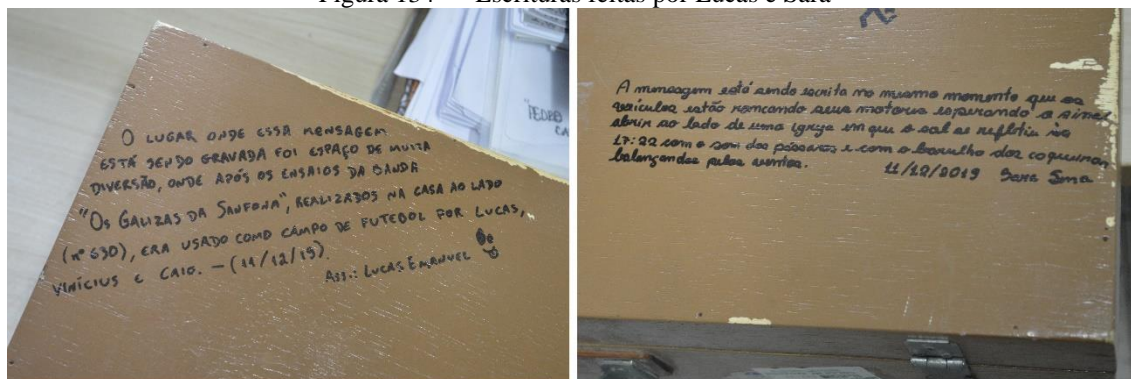 Escrituras feitas por Lucas e Sara
O LUGAR ONDE ESSA MENSAGEM
ESTÁ SENDO GRAVADA FOI ESPAÇO DE MUITA
DIVERSÃO, ONDE APÓS OS ENSAIOS DA BANDA
"OS GALIZAS DA SANFONA", REALIZADOS NA CASA AO LADO
(nº 630), ERA USADO COMO CAMPO DE FUTEBOL POR LUCAS,
VINÍCIUS E CAIO. - (11/12/19).
ASS.: LUCAS EMANUEL
PEDRO
A mensagem está sendo escrita no mesmo momento que os
veículos estão roncando seus motores esperando o sinal
abrir ao lado de uma igreja em que o sol se refletia
17:22 com o som dos pássaros e com o barulho dos coqueiros
balançandos pelos ventos.
11/12/2019 Sara